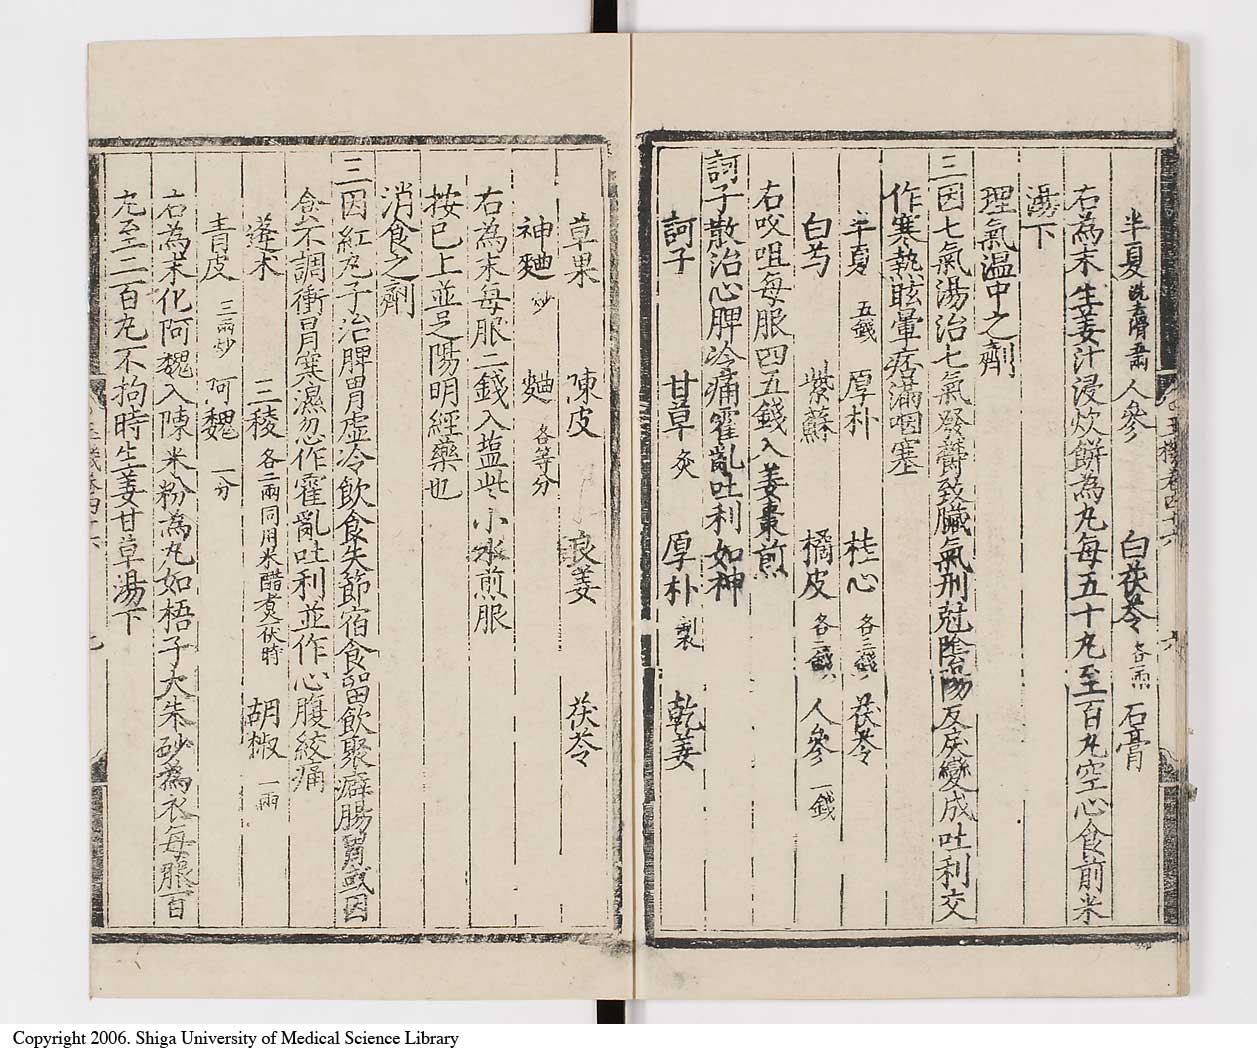 半夏 洗去滑五兩 人參 白茯苓 各一兩 石膏
右為末生姜汁浸炊餅為丸每五十丸至百丸空心食前米
湯下
理氣温中之劑
三因七氣湯治七氣發欝致臟氣刑尅隂陽反戾變成吐利交
作寒熱眩暈痞滿咽塞
半夏 五錢 厚朴 桂心 各三錢 茯苓
白芍 紫蘇 橘皮 各二錢 人參 一錢
右㕮咀每服四五錢入姜棗煎
訶子散治心脾冷痛霍亂吐利如神
訶子 甘草 灸 厚朴 製 乾姜
草果 陳皮 良姜 茯苓
神麯 炒 麯 各等分
右為末每服二錢入塩些小水煎服
按已上並足陽明經藥也
消食之劑
三因紅丸子治脾胃虛冷飲食失節宿食留飲聚癖腸胃或因
食不調衝冒寒濕忽作霍亂吐利並作心腹絞痛
蓬朮 三稜 各二兩同用米醋煮一伏時 胡椒 一兩
青皮 三兩炒 阿魏 一分
右為末化阿魏入陳米粉為丸如梧子大朱砂為衣每服百
丸至二百丸不拘時生姜甘草湯下
Copyright 2006. Shiga University of Medical Science Library